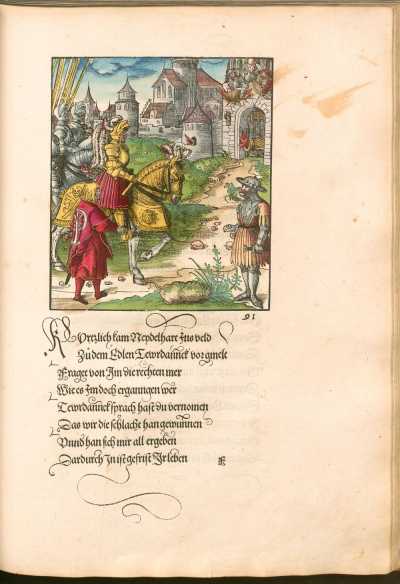 91
KUrtzlich kam Neydelhart zus veld
Zu dem Edlen Tewrdannck vorgmelt
Fraget von Im die rechten mer
Wie es Im doch erganngen wer
Tewrdannck sprach hast du vernomen
Das wir die schlacht han gewunnen
Vnnd han sich mir all ergeben
Dardurch In ist gefrist Ir leben